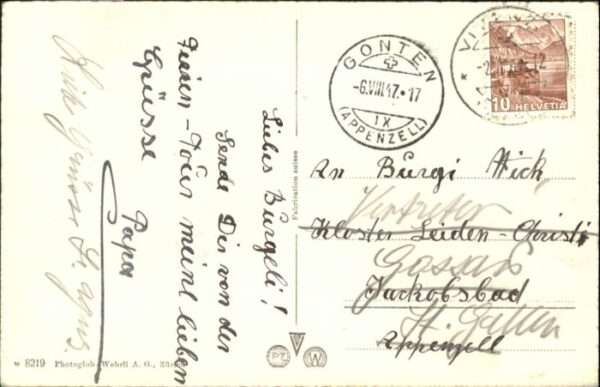 Liebes Bürgeli!
Sende Dir von der
Fusen-Tour meint lieben
Grüsse
Papa
GONTEN
-6.VIII.47.-17
IX
(APPENZELL)
10 HELVETIA
An Bürgi Wick
Vertreter
Kloster Leiden-Christi
Gossau
Jackobsbad
St. Gallen
Appenzell
Fabrication suisse
PZ
W
w 8219 Photoglob-Wehrli A. G., Zürich